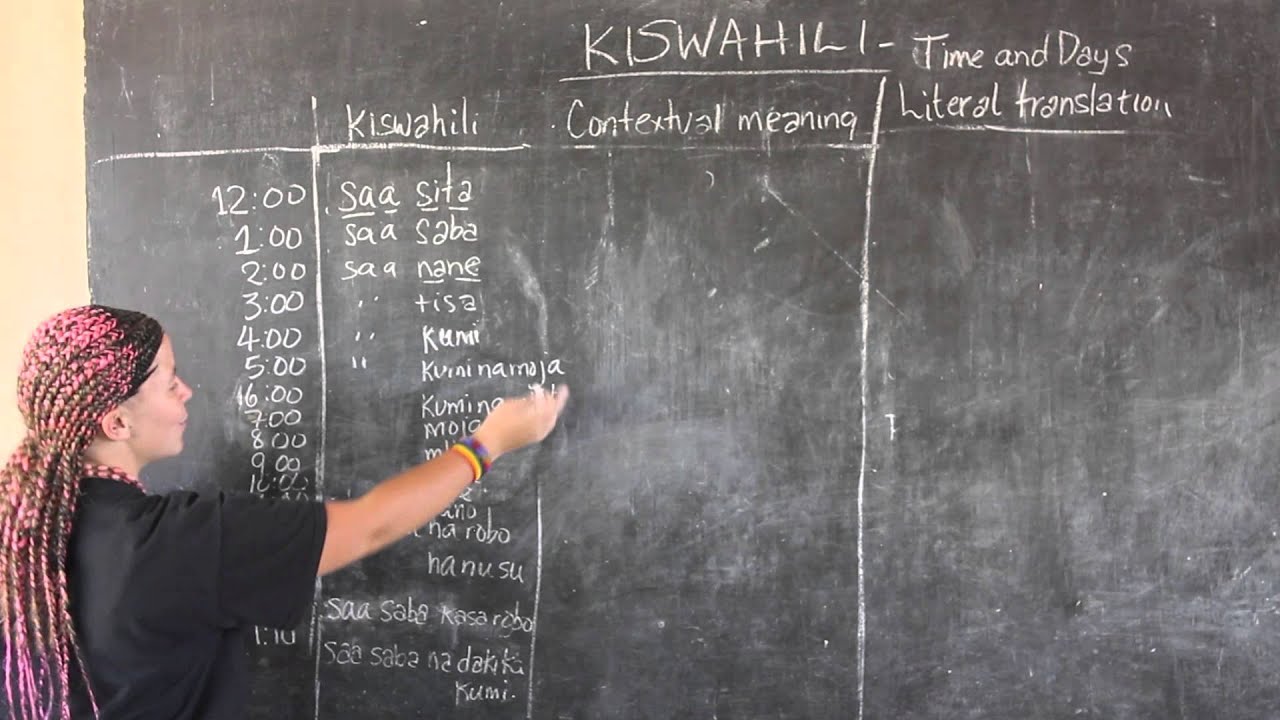 KISWAHILI - Time and Days
Kiswahili Contextual meaning Literal translation
12:00 saa sita
1:00 saa saba
2:00 saa nane
3:00 " tisa
4:00 " kumi
5:00 " kuminamoja
6:00 kumina
7:00 moja
8:00
9:00
10:00
na robo
na nusu
saa saba kasarobo
1:10 saa saba na dakika
kumi.